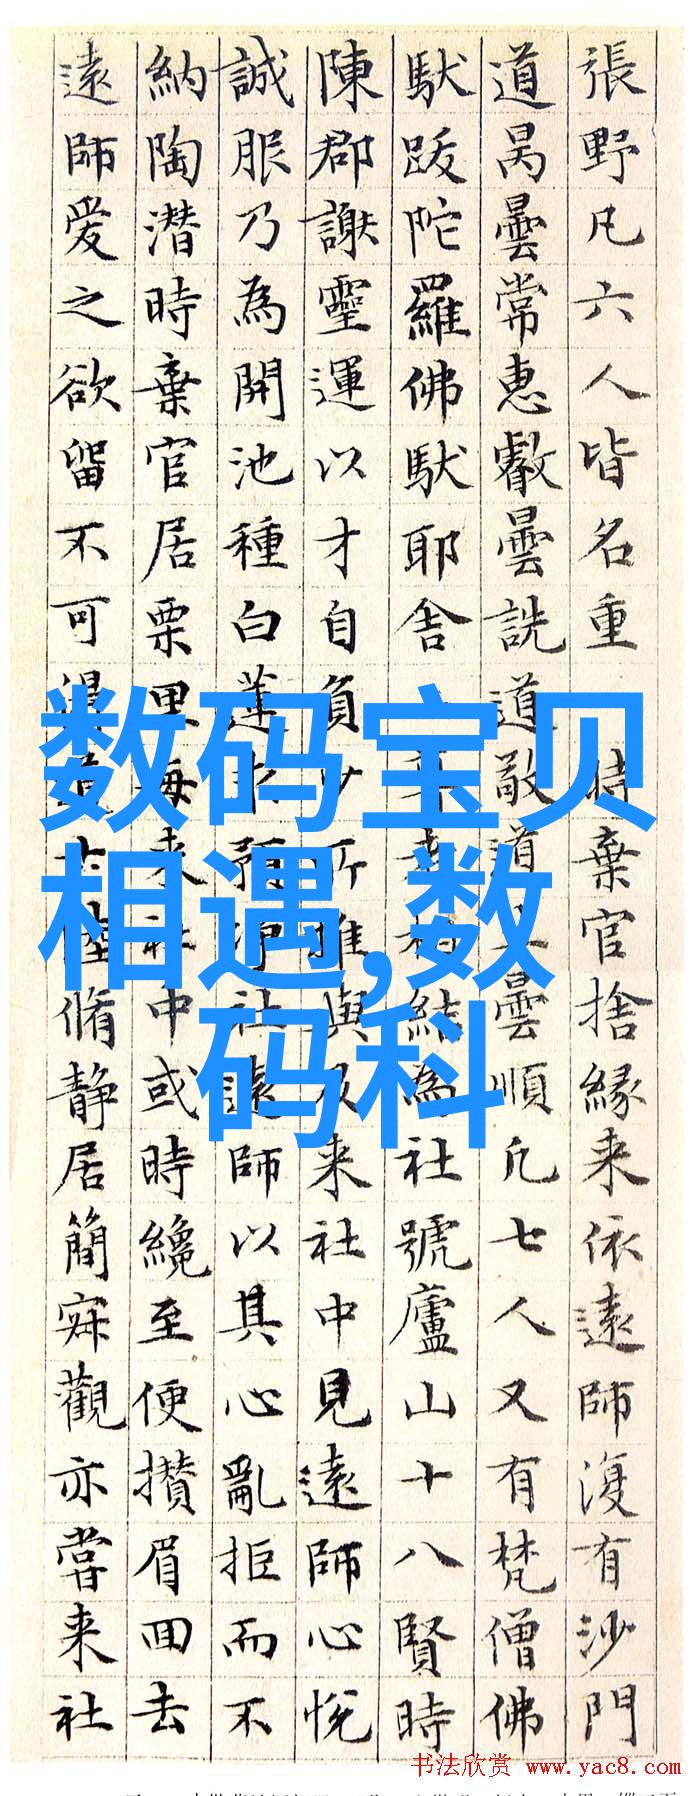 張野凡六人皆名重
時棄官捨緣来依遠師復有沙門
道昺曇常惠叡曇詵道敬道
曇順凡七人又有梵僧佛
馱跋陀羅佛馱耶舍
結為社號廬山十八賢時
陳郡謝靈運以才自負少所推與及来社中見遠師心悅
誠服乃為開池種白蓮求預淨社遠師以其心亂拒而不
納陶潜時棄官居栗里每来社中或時纔至便攢眉回去
遠師爱之欲留不可
脩静居簡寂觀亦嘗来社
数码宝贝
相遇,数
码科
书法欣赏 www.yac8.com